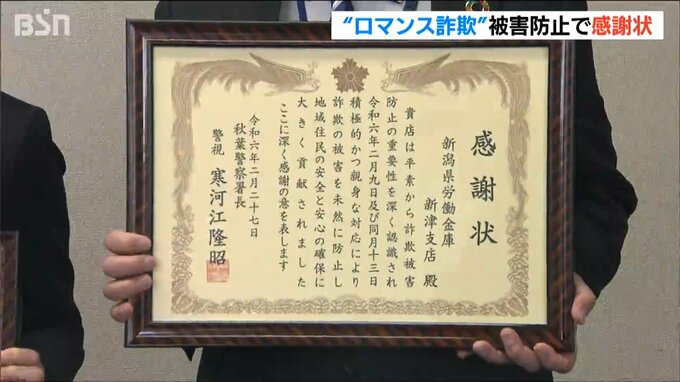 BSN
“ロマンス詐欺”被害防止で感謝状
感謝状
新潟県労働金庫
新津支店 殿
貴店は平素から詐欺被害
防止の重要性を深く認識され
令和六年二月九日及び同月十三日
積極的かつ親身な対応により
詐欺の被害を未然に防止し
地域住民の安全と安心の確保に
大きく貢献されました
ここに深く感謝の意を表します
令和六年二月二十七日
秋葉警察署長
警視 寒河江隆昭